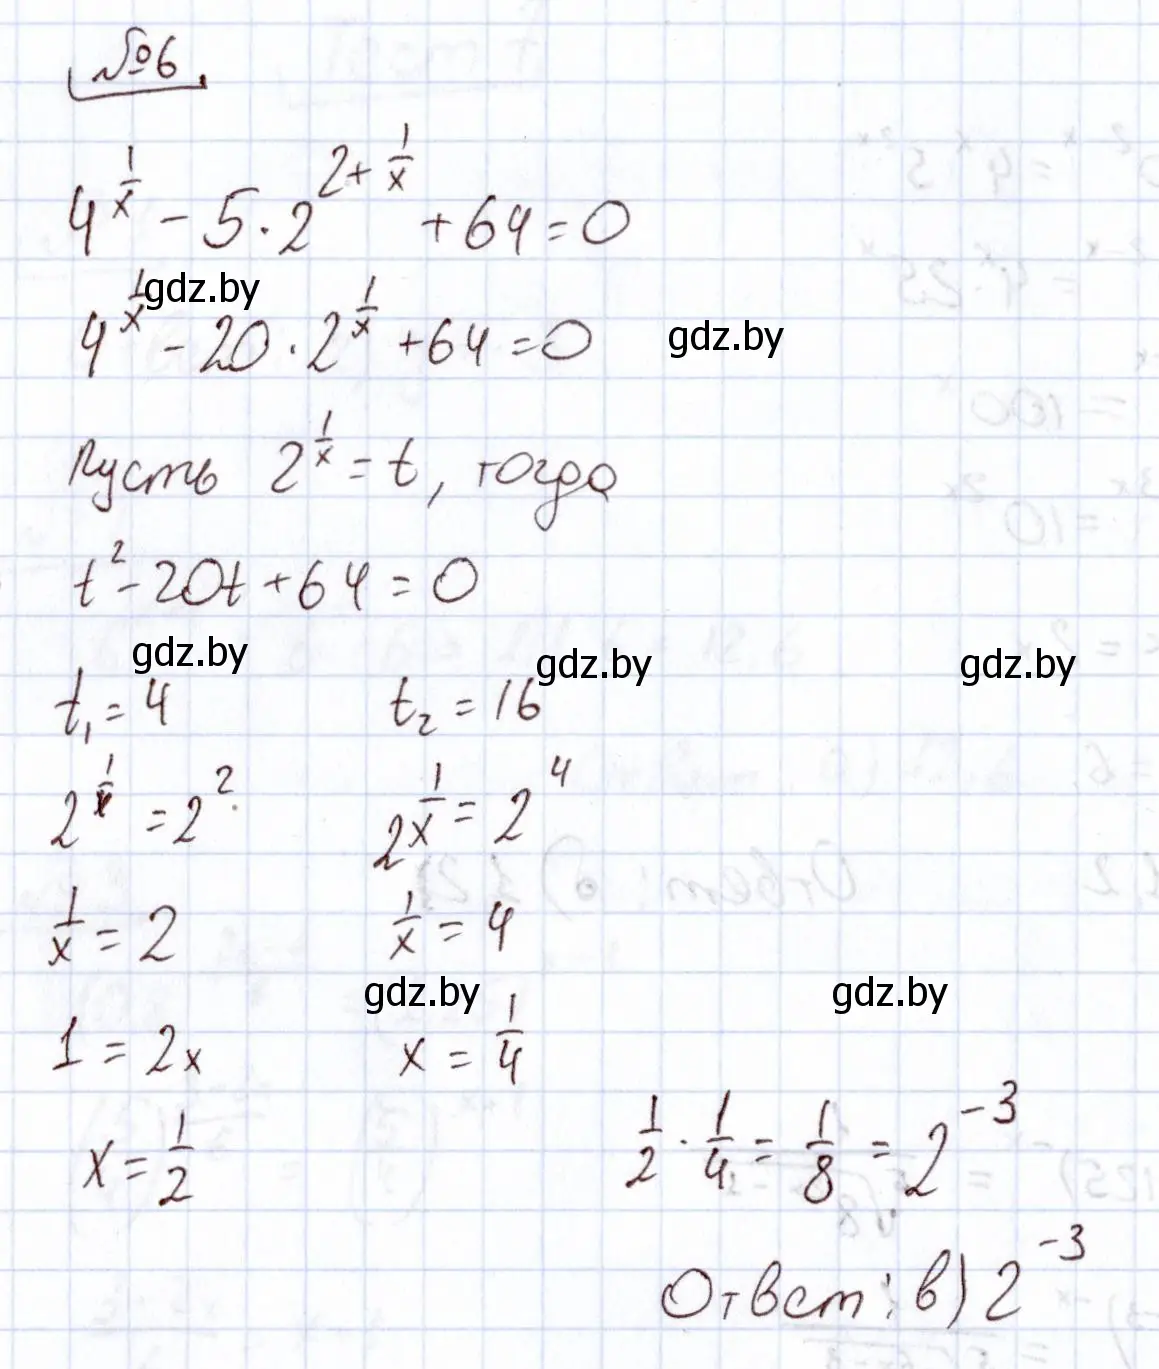 №6
4^{\frac{1}{x}} - 5 · 2^{2+\frac{1}{x}} + 64 = 0
gdz.by
4^{\frac{1}{x}} - 20 · 2^{\frac{1}{x}} + 64 = 0 gdz.by
Пусть 2^{\frac{1}{x}} = t, тогда
t^2 - 20t + 64 = 0
gdz.by gdz.by gdz.by
t_1 = 4 t_2 = 16
2^{\frac{1}{x}} = 2^2 2^{\frac{1}{x}} = 2^4
\frac{1}{x} = 2 \frac{1}{x} = 4
gdz.by gdz.by
1 = 2x x = \frac{1}{4}
x = \frac{1}{2} \frac{1}{2} · \frac{1}{4} = \frac{1}{8} = 2^{-3}
Ответ: в) 2^{-3}